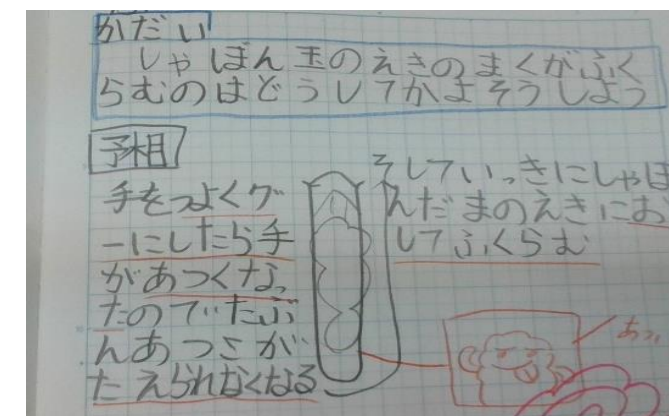 かだい
しゃぼん玉のえきのまくがふく
らむのはどうしてかよそうしよう
予想
手をつよくグ
ーにしたら手
があつくなっ
たのでたぶ
んあつこが
たえられなくなる
そしていっきにしゃぼ
んだまのえきにお
してふくらむ
あつ